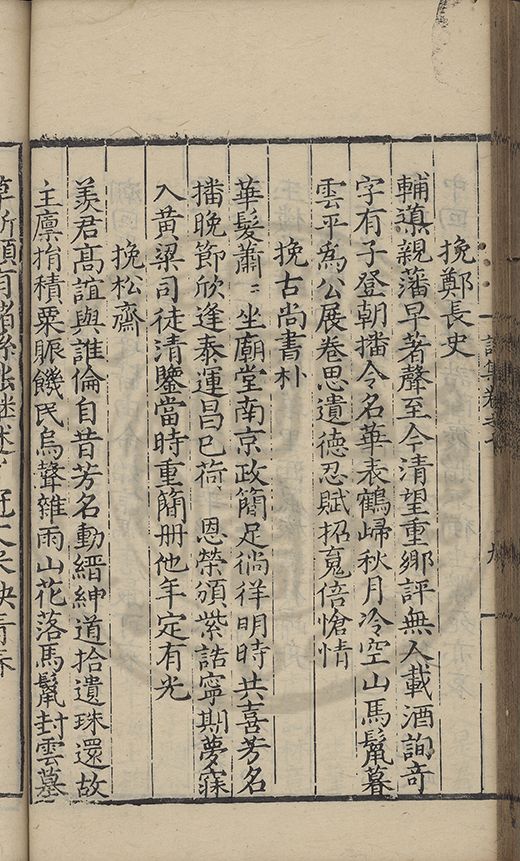 挽鄭長史
輔導親藩早著聲至今清望重鄉評無人載酒詢竒
字有子登朝播令名華表鶴歸秋月冷空山馬鬣暮
雲平爲公展卷思遺德忍賦招䰟倍愴情
挽古尚書朴
華髮蕭〻坐廟堂南京政簡足徜徉明時共喜芳名
播晚節欣逢泰運昌已荷 恩榮頒紫誥寧期夢寐
入黃粱司徒清鑒當時重簡册他年定有光
挽松齋
羨君高誼與誰倫自昔芳名動縉紳道拾遺珠還故
主廩捐積粟賑饑民烏聲雜雨山花落馬鬣封雲墓
草新